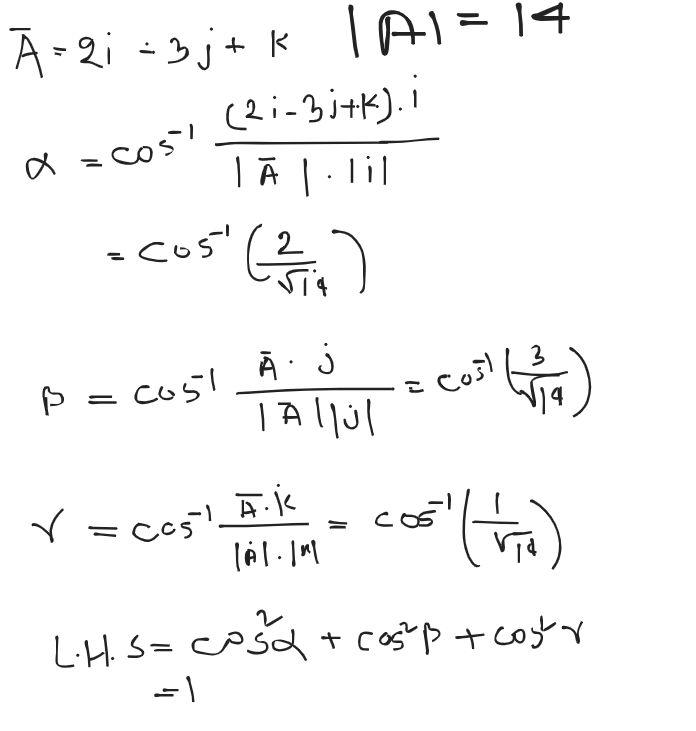 Ā = 2i - 3j + k |A| = 14
α = cos⁻¹ (2i-3j+k).i / |Ā|.|i|
= cos⁻¹ (2/√14)
β = cos⁻¹ Ā.j / |Ā||j| = cos⁻¹ (3/√14)
γ = cos⁻¹ Ā.k / |Ā|.|k| = cos⁻¹ (1/√14)
L.H.S = cos²α + cos²β + cos²γ
= 1